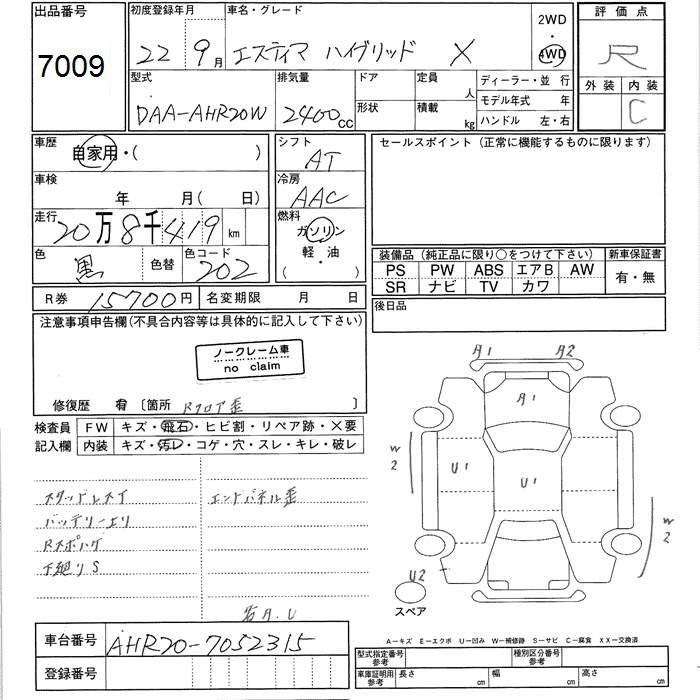 出品番号
7009
初度登録年月 22 9月
車名・グレード エスティマ ハイブリッド X
2WD
・
4WD
評価点
R
外装 内装
C
型式
DAA-AHR20W
排気量
2400cc
ドア
形状
定員 人
積載 kg
ディーラー・並 行
モデル年式 年
ハンドル 左・右
車歴
自家用・( )
車検
年 月( 日)
走行
20万8千419km
色 黒 色替
色コード 202
シフト
AT
冷房
AAC
燃料
ガソリン
軽・油
( ・ )
セールスポイント (正常に機能するものに限ります)
装備品 (純正品に限り○をつけて下さい)
新車保証書
PS PW ABS エアB AW
SR ナビ TV カワ
有・無
R券 15700円
名変期限 月 日
後日品
注意事項申告欄(不具合内容等は具体的に記入して下さい)
ノークレーム車
no claim
修復歴 有 〔箇所 Rフロア歪 〕
検査員
記入欄
FW キズ・飛石・ヒビ割・リペア跡・X要
内装 キズ・汚レ・コゲ・穴・スレ・キレ・破レ
スタッドレスタイ
エンドパネル歪
バッテリーエリ
Rスポハゲ
下廻りS
右A.U
A1 A2
A1
W2
U1
U1
W2
U2
スペア
車台番号 AHR20-7052315
登録番号
A―キズ E―エクボ U―凹み W―補修跡 S―サビ C―腐食 XX―交換済
型式指定番号
参考
種別区分番号
参考
車庫証明用
参考
長さ cm 幅 cm 高さ cm